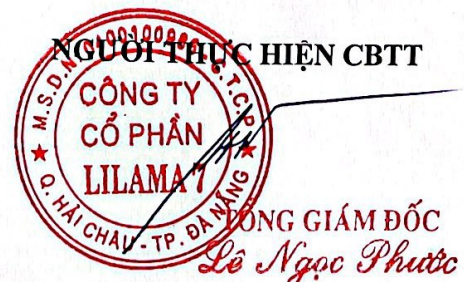 NGƯỜI THỰC HIỆN CBTT
CÔNG TY
CỔ PHẦN
LILAMA 7
Q. HẢI CHÂU - TP. ĐÀ NẴNG
TỔNG GIÁM ĐỐC
Lê Ngọc Phước